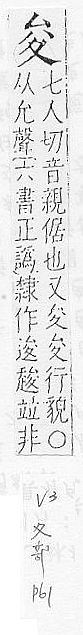 夋
七人切音親倨也又夋夋行貌〇
从允聲六書正譌隸作逡踆竝非
V3
夊部
p61